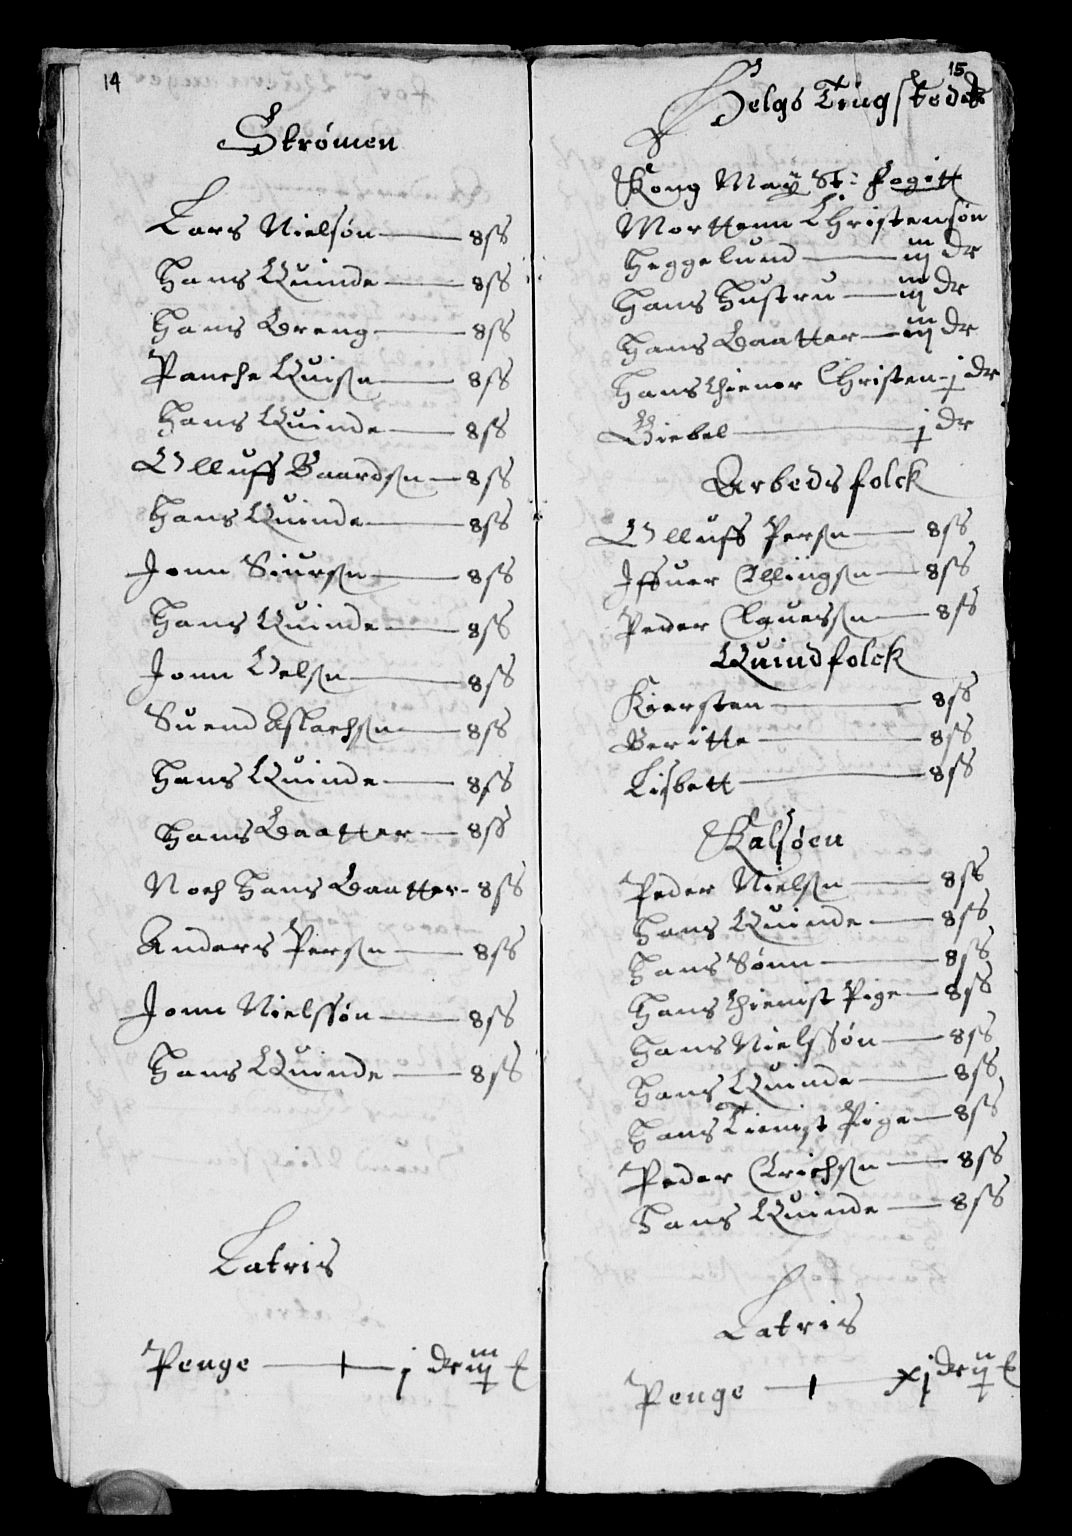 14
Strømen
Lars Nielsøn — 8 ss
Hans Quinde — 8 ss
Hans Dreng — 8 ss
Panche Quisn — 8 ss
Hans Quinde — 8 ss
Olluff Baardsn — 8 ss
Hans Quinde — 8 ss
Jonn Siursn — 8 ss
Hans Quinde — 8 ss
Jonn Oelsn — 8 ss
Suend Aslachsn — 8 ss
Hans Quinde — 8 ss
Hans Daatter — 8 ss
Noch Hans Daatter - 8 ss
Anders Persn — 8 ss
Jonn Nielssøn — 8 ss
Hans Quinde — 8 ss
Latris
Penge — j dr iiij
15
Helgø Tingstedt
Kong Maÿ st: fogitt
Morttenn Christensøn
Heggelund — iiij dr
Hans Hustru — iiij dr
Hans Daatter — iiij dr
Hans thienor Christen - j dr
Giebel — j dr
Arbedsfolck
Olluff Persn — 8 ss
Iffuer Ellingsn — 8 ss
Peder Clauessn — 8 ss
Quindfolck
Kiersten — 8 ss
Beritte — 8 ss
Lisbett — 8 ss
Kalsøen
Peder Nielsn — 8 ss
Hans Quinde — 8 ss
Hans Sønn — 8 ss
Hans thienist Pige — 8 ss
Hans Nielssøn — 8 ss
Hans Quinde — 8 ss
Hans Tienist Pige — 8 ss
Peder Erichsn — 8 ss
Hans Quinde — 8 ss
Latris
Penge — xj dr ij